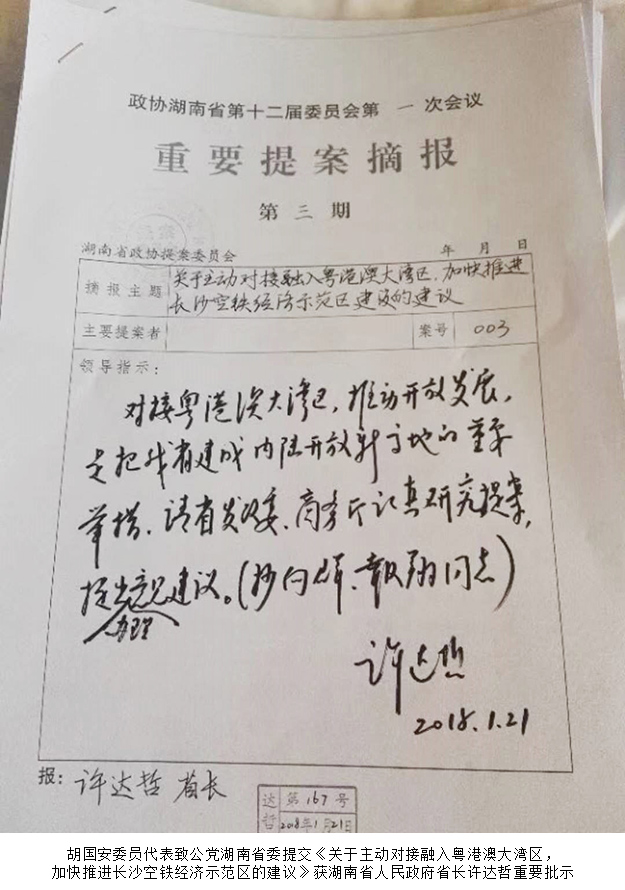 政协湖南省第十二届委员会第 一 次会议
重要提案摘报
第 三 期
湖南省政协提案委员会 年 月 日
摘报主题 关于主动对接融入粤港澳大湾区,加快推进
长沙空铁经济示范区建设的建议
主要提案者 案号 003
领导指示:
对接粤港澳大湾区,推动开放发展,
是把我省建成内陆开放新高地的重要
举措,请省发改委、商务厅认真研究提案,
提出办理意见建议。(抄向群、同志)
许达哲
2018.1.21
报: 许达哲 省长
达 第167号
哲 2018年1月21日
胡国安委员代表致公党湖南省委提交《关于主动对接融入粤港澳大湾区,
加快推进长沙空铁经济示范区的建议》获湖南省人民政府省长许达哲重要批示